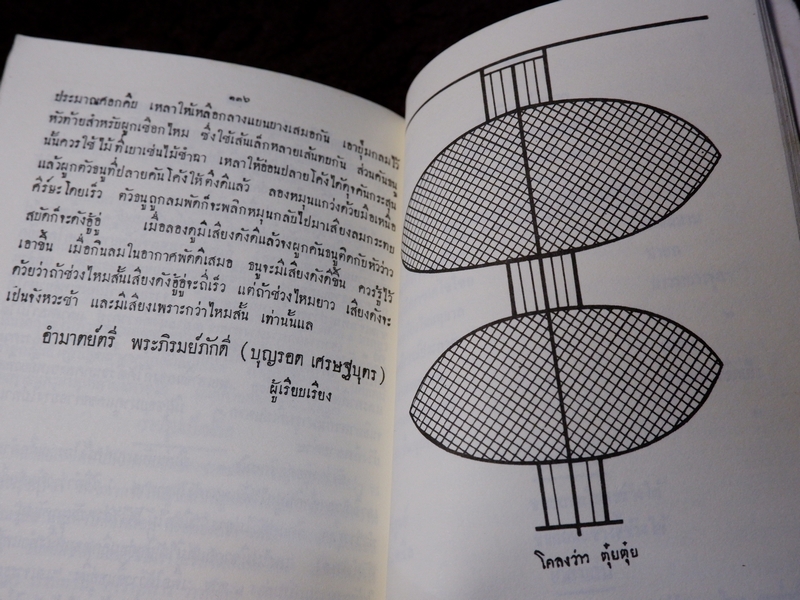 ๑๓๖
ประมาณศอกคืบ เหลาให้เหลือกลางแบนยางเสมอกัน เอาปุ่มกลมไว้
หัวท้ายสำหรับผูกเชือกไหม ซึ่งใช้เส้นเล็กหลายเส้นทยกัน ส่วนคันธนู
นั้นควรใช้ไม้ที่เบาเช่นไม้ซ่ำฉา เหลาให้อ่อนปลายโค้งได้ดุจคันกระสุน
แล้วผูกตัวธนูที่ปลายคันโค้งให้ตึงดีแล้ว ลองหมุนแกว่งด้วยมือเหนือ
ศีร์ษะโดยเร็ว ตัวธนูถูกลมพัดก็จะพลิกหมุนกลับไปมาเสียงลมกระทบ
สบัดก็จะดังอู้อู่ เมื่อลองดูมีเสียงดังดีแล้วจงผูกคันธนูติดกับหัวว่าว
เอาขึ้น เมื่อกินลมในอากาศพัดดีเสมอ ธนูจะมีเสียงดังดีขึ้น ควรรู้ไว้
ด้วยว่าถ้าช่วงไหมสั้นเสียงดังอู้อู่จะถี่เร็ว แต่ถ้าช่วงไหมยาว เสียงดังจะ
เป็นจังหวะช้า และมีเสียงเพราะกว่าไหมสั้น เท่านั้นแล
อำมาตย์ตรี พระภิรมย์ภักดี (บุญรอด เศรษฐบุตร)
ผู้เรียบเรียง
โคลงว่าว ตุ๋ยตุ๋ย